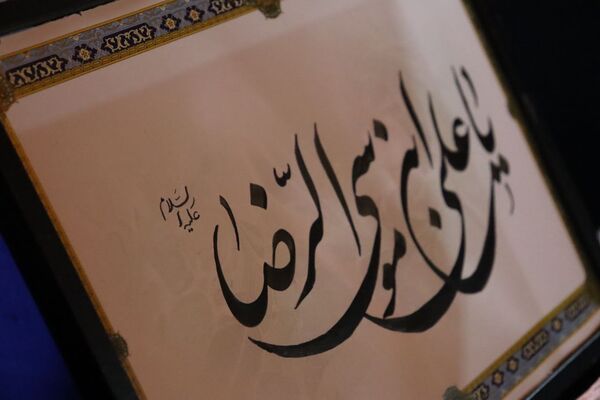 یا علی ابن موسی الرّضا
علیه السلام